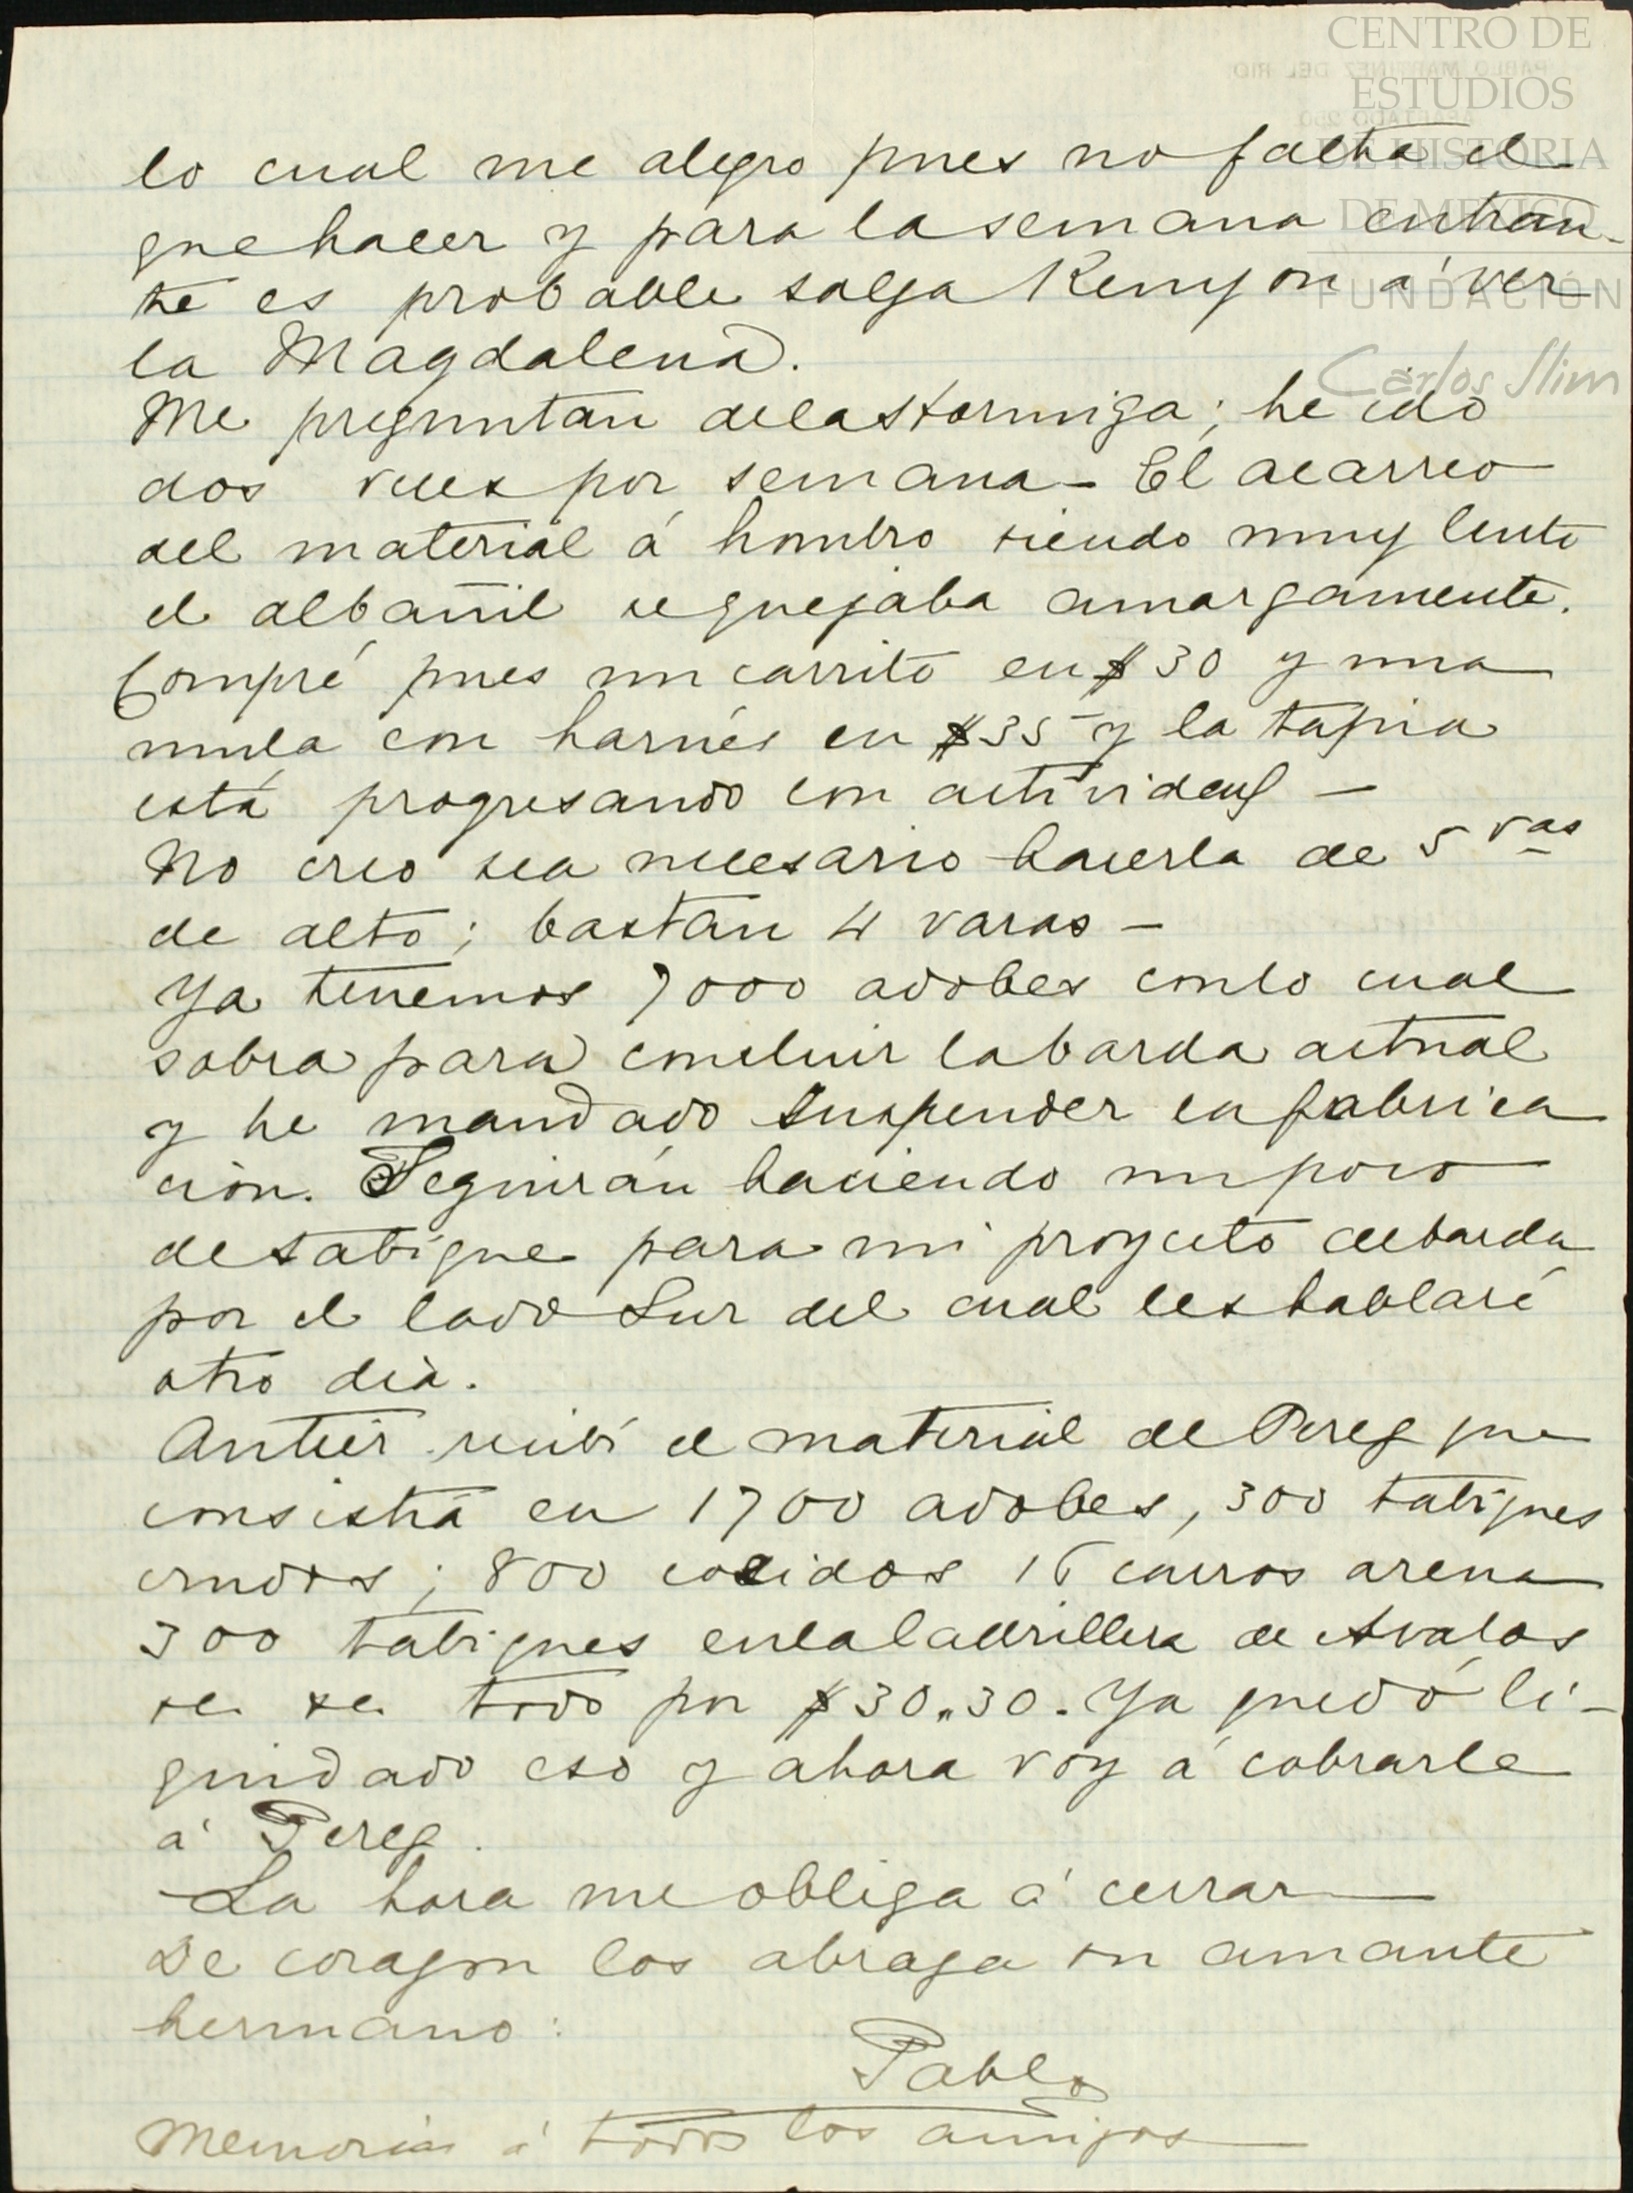 CENTRO DE
ESTUDIOS
DE HISTORIA
DE MÉXICO
FUNDACIÓN
Carlos Slim
PABLO MARTINEZ DEL RIO
APARTADO 250
lo cual me alegro pues no falta el
que hacer y para la semana entran-
te es probable salga Kenyon á ver
la Magdalena.
Me preguntan de la Hormiga; he ido
dos veces por semana - El acarreo
del material á hombro siendo muy lento
el albañil se quejaba amargamente.
Compré pues un carrito en $30 y una
mula con harnés en $35 - y la tapia
está progresando con actividad -
No creo sea necesario hacerla de 5 vas
de alto; bastan 4 varas -
Ya tenemos 7000 adobes con lo cual
sobra para concluir la barda actual
y he mandado suspender la fabrica
ción. Seguirán haciendo un poco
de tabique para mi proyecto de barda
por el lado Sur del cual les hablaré
otro dia.
Antier recibí el material de Perez que
consistía en 1700 adobes, 300 tabiques
crudos; 800 cocidos 16 carros arena
300 tabiques en la ladrillera de Avalos
todo por $30.30. Ya quedó li-
quidado eso y ahora voy á cobrarle
á Perez.
La hora me obliga á cerrar
De corazon los abraza su amante
hermano:
Pablo
Memorias á todos los amigos